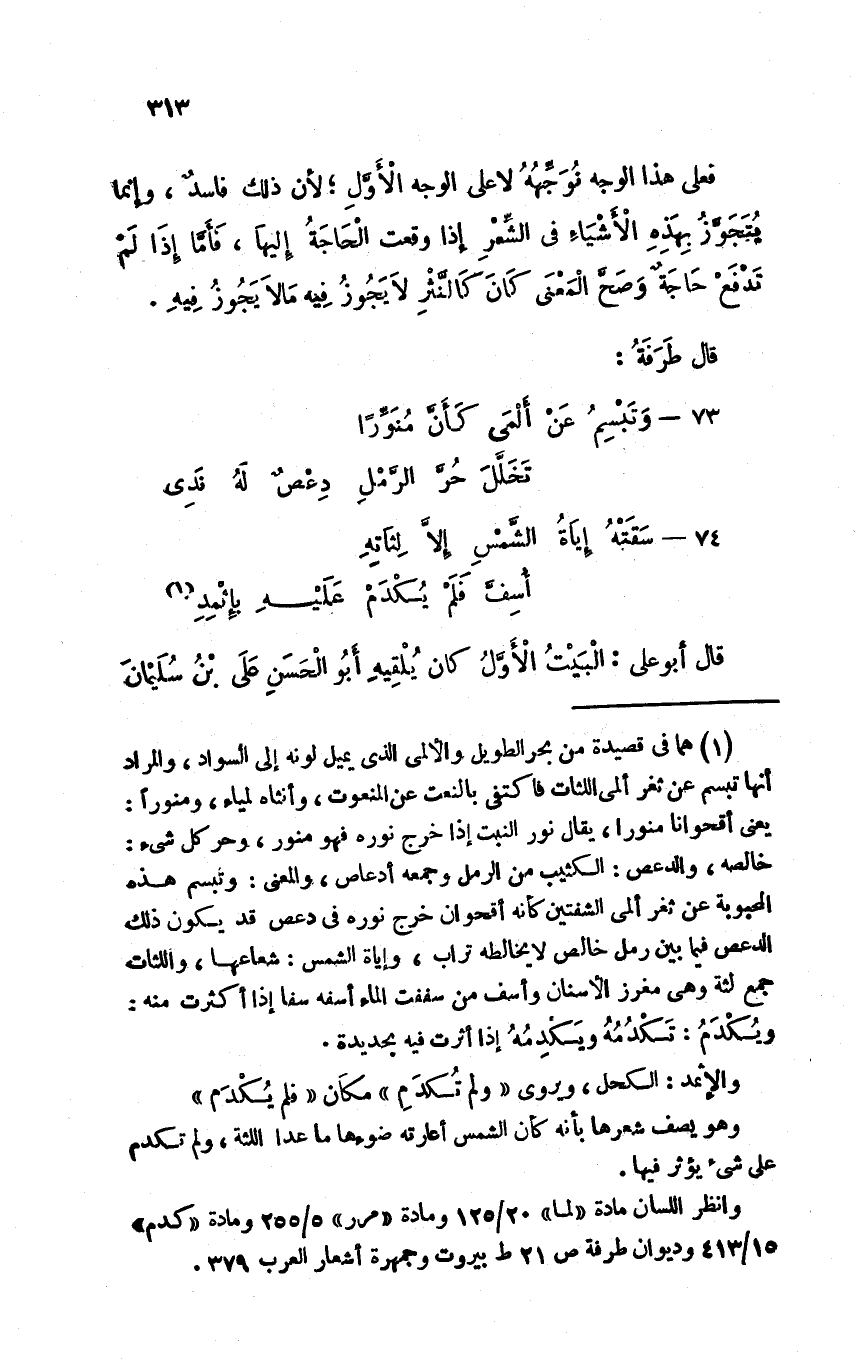 ٣١٣
فعلى هذا الوجه نُوَجِّهُهُ لاعلى الوجه الْأَوَّلِ ؛ لأن ذلك فاسدٌ ، وإنما
يُتَجَوَّزُ بِهَذِهِ الْأَشْيَاءِ فى الشِّعْرِ إذا وقعت الْحَاجَةُ إليها ، فَأَمَّا إِذَا لَمْ
تَدْفَعْ حَاجَةٌ وَصَحَّ الْمَعْنَى كَانَ كَالنَّثْرِ لاَ يَجُوزُ فِيه مَالاَ يَجُوزُ فِيهِ .
قال طَرَفَةُ :
٧٣ — وَتَبْسِمُ عَنْ أَلْمَى كَأَنَّ مُنَوِّرًا
تَخَلَّلَ حُرَّ الرَّمْلِ دِعْصٌ لَهُ نَدِى
٧٤ — سَقَتْهُ إِيَاةُ الشَّمْسِ إِلاَّ لِثَاتِهِ
أُسِفَّ فَلَمْ يُكْدَمْ عَلَيْـــهِ بِإِثْمِدِ (١)
قال أبو على : الْبَيْتُ الْأَوَّلُ كان يُلْقِيهِ أَبُو الْحَسَنِ عَلَى بْنُ سُلَيْمَانَ
(١) هما فى قصيدة من بحر الطويل والألمى الذى يميل لونه إلى السواد ، والمراد
أنها تبسم عن ثغر ألمى اللثات فاكتفى بالنعت عن المنعوت ، وأنثاه لمياء ، ومنوراً :
يعنى أقحوانا منورا ، يقال نور النبت إذا خرج نوره فهو منور ، وحر كل شىء :
خالصه ، والدعص : الكثيب من الرمل وجمعه أدعاص ، والمعنى : وتبسم هـذه
المحبوبة عن ثغر ألمى الشفتين كأنه أقحوان خرج نوره فى دعص قد يكون ذلك
الدعص فيما بين رمل خالص لا يخالطه تراب ، وإياة الشمس : شعاعهـا ، واللثات
جمع لثة وهى مغرز الأسنان وأسف من سففت الماء أسفه سفا إذا أكثرت منه :
ويُكْدَمُ : تَكْدُمُهُ ويَكْدِمُهُ إذا أثرت فيه بحديدة .
والإثمد : الكحل ، ويروى « ولم تُكدَمِ » مكان « فلم يُكْدَم »
وهو يصف شعرها بأنه كأن الشمس أعارته ضوءها ما عدا اللثة ، ولم تكدم
على شىء يؤثر فيها .
وانظر اللسان مادة «لمـا» ١٢٥/٢٠ ومادة «حرر» ٢٥٥/٥ ومادة «كدم»
٤١٣/١٥ وديوان طرفة ص ٢١ ط بيروت وجمهرة أشعار العرب ٣٧٩ .